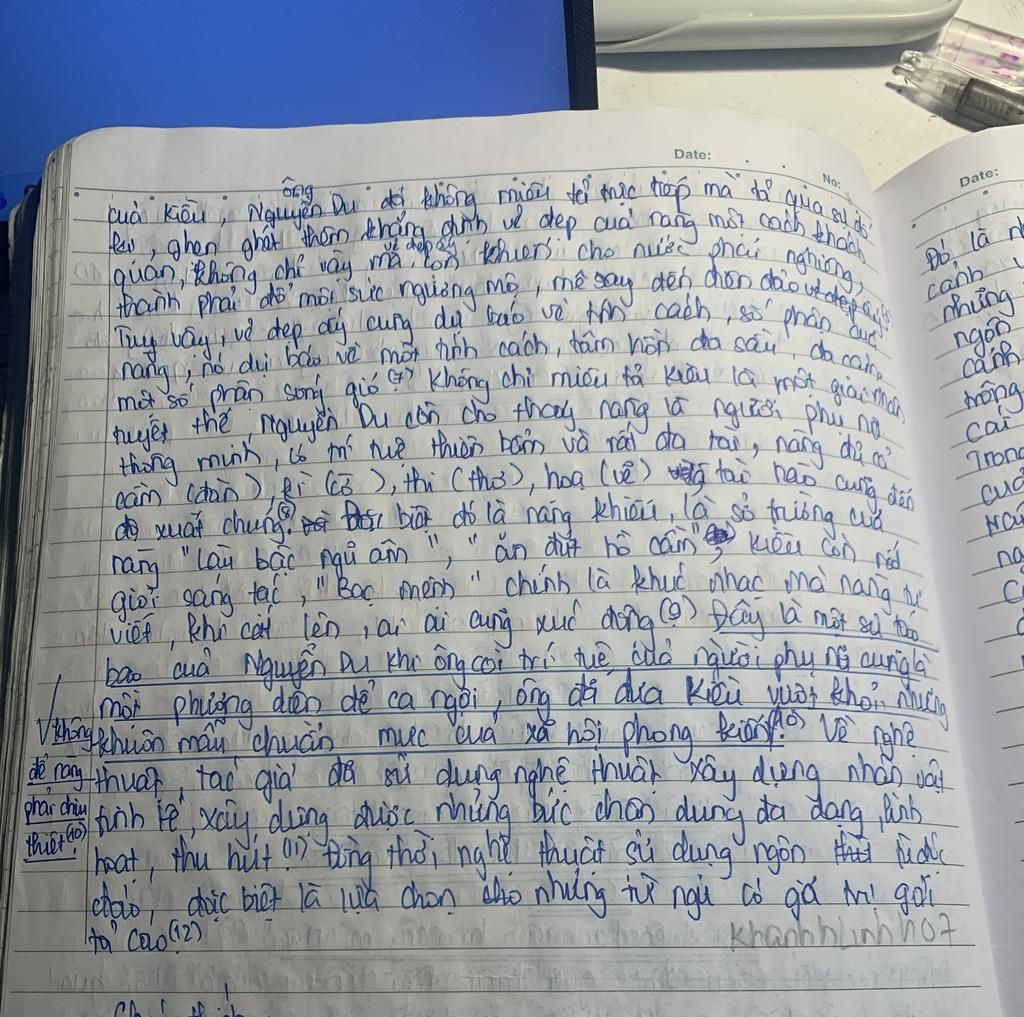 Date:
No:
của Kiều, ông Nguyễn Du đã không miêu tả trực tiếp mà tả qua sự đố
kị, ghen ghét thầm khẳng định vẻ đẹp của nàng một cách khách
quan, không chỉ vậy mà vẻ đẹp ấy còn khiến cho nước phải nghiêng,
thành phải đổ mới sức ngưỡng mộ, mê say đến điên đảo vẻ đẹp ấy
Tuy vậy, vẻ đẹp ấy cũng dự báo về tính cách, số phận của
nàng, nó dự báo về một tính cách, tâm hồn đa sầu, đa cảm,
một số phận sóng gió (7) Không chỉ miêu tả Kiều là một giai nhân
tuyệt thế, Nguyễn Du còn cho thấy nàng là người phụ nữ
thông minh, có trí tuệ thiên bẩm và rất đa tài, nàng đủ cả
cầm (đàn), kì (cờ), thi (thơ), hoạ (vẽ) tài nào cũng đến
độ xuất chúng (8) biệt đó là năng khiếu, là sở trường của
nàng "Làu bậc ngũ âm", "ăn đứt hồ cầm", Kiều còn rất
giỏi sáng tác, "Bạc mệnh" chính là khúc nhạc mà nàng tự
viết, khi cất lên, ai ai cũng xúc động (9) Đây là một sự táo
bạo của Nguyễn Du khi ông coi trí tuệ của người phụ nữ cũng là
một phương diện để ca ngợi, ông đã đưa Kiều vượt khỏi những
khuôn mẫu chuẩn mực của xã hội phong kiến (10) Về nghệ
thuật, tác giả đã sử dụng nghệ thuật xây dựng nhân vật
tinh tế, xây dựng được những bức chân dung đa dạng, linh
hoạt, thu hút (11) Đồng thời, nghệ thuật sử dụng ngôn từ độc
đáo, đặc biệt là lựa chọn những từ ngữ có giá trị gợi
tả cao (12)
không
để nàng
phải chịu
thiệt (10)
khanhhlinhh07
Date:
Đó là
cảnh
những
ngôn
cảnh
trông
cái
Trong
của